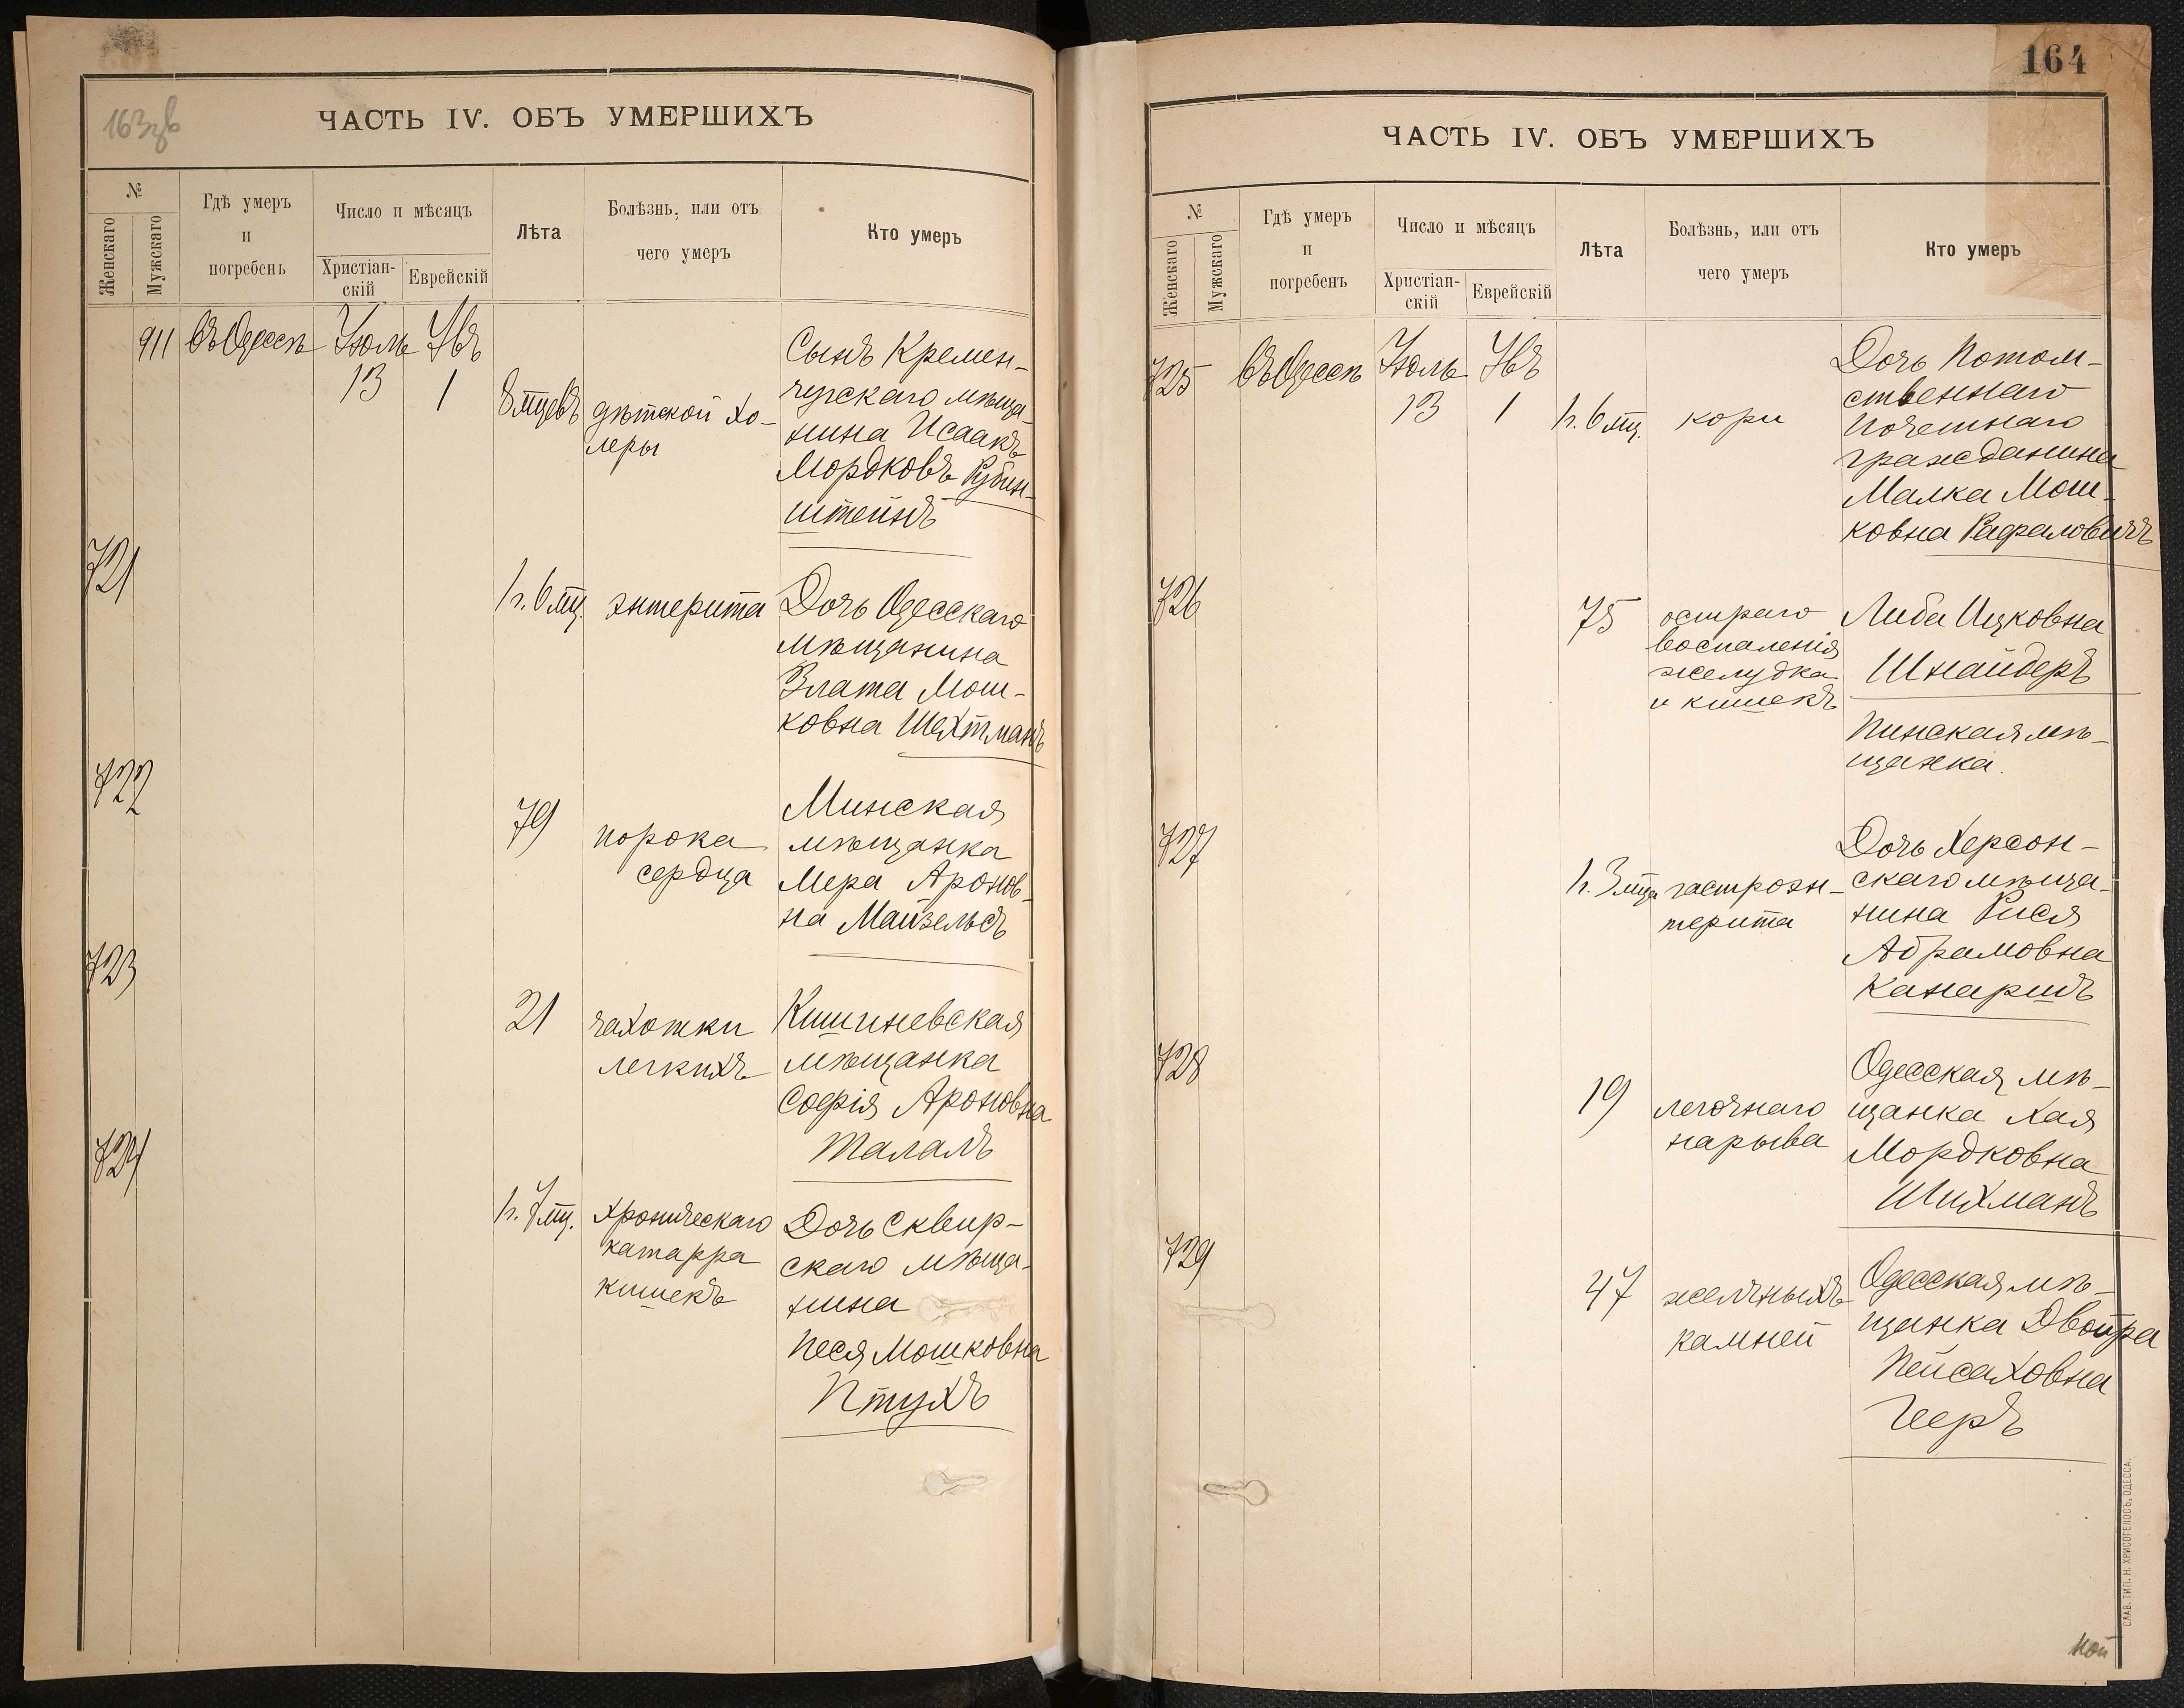 163зв
ЧАСТЬ IV. ОБЪ УМЕРШИХЪ
№
Женскаго
Мужскаго
Гдѣ умеръ
и
погребенъ
Число и мѣсяцъ
Христіан-
скій
Еврейскій
Лѣта
Болѣзнь, или отъ
чего умеръ
Кто умеръ
911 въ Одессѣ Іюль Ябъ
13 1
8 мцевъ дѣтской хо-
леры
Сынъ Кремен-
чугскаго мѣща-
нина Исаакъ
Мордковъ Рубин-
штейнъ
721
1 г. 6 мц. энтерита
Дочь Одесскаго
мѣщанина
Злата Мош-
ковна Шехтманъ
722
79 порока
сердца
Минская
мѣщанка
Мера Аронов-
на Майзельсъ
723
21 чахотки
легкихъ
Кишиневская
мѣщанка
Софія Ароновна
Талалъ
724
1 г. 7 мц. хроническаго
катарра
кишекъ
Дочь Сквир-
скаго мѣща-
нина
Песя Мошковна
Птухъ
164
ЧАСТЬ IV. ОБЪ УМЕРШИХЪ
№
Женскаго
Мужскаго
Гдѣ умеръ
и
погребенъ
Число и мѣсяцъ
Христіан-
скій
Еврейскій
Лѣта
Болѣзнь, или отъ
чего умеръ
Кто умеръ
725 въ Одессѣ Іюль Ябъ
13 1
1 г. 6 мц. кори
Дочь Потом-
ственнаго
Почетнаго
гражданина
Малка Мош-
ковна Рафаловичъ
726
75 остраго
воспаленія
желудка
и кишекъ
Либа Ицковна
Шнайдеръ
Пинская мѣ-
щанка.
727
1 г. 3 мца гастроэн-
терита
Дочь Херсон-
скаго мѣща-
нина Рися
Абрамовна
Канаришъ
728
19 легочнаго
нарыва
Одесская мѣ-
щанка Хая
Мордковна
Шихманъ
729
47 желчныхъ
камней
Одесская мѣ-
щанка Двойра
Пейсаховна
Гееръ
СЛАВ. ТИП. Н. ХРИСОГЕЛОСЪ, ОДЕССА.